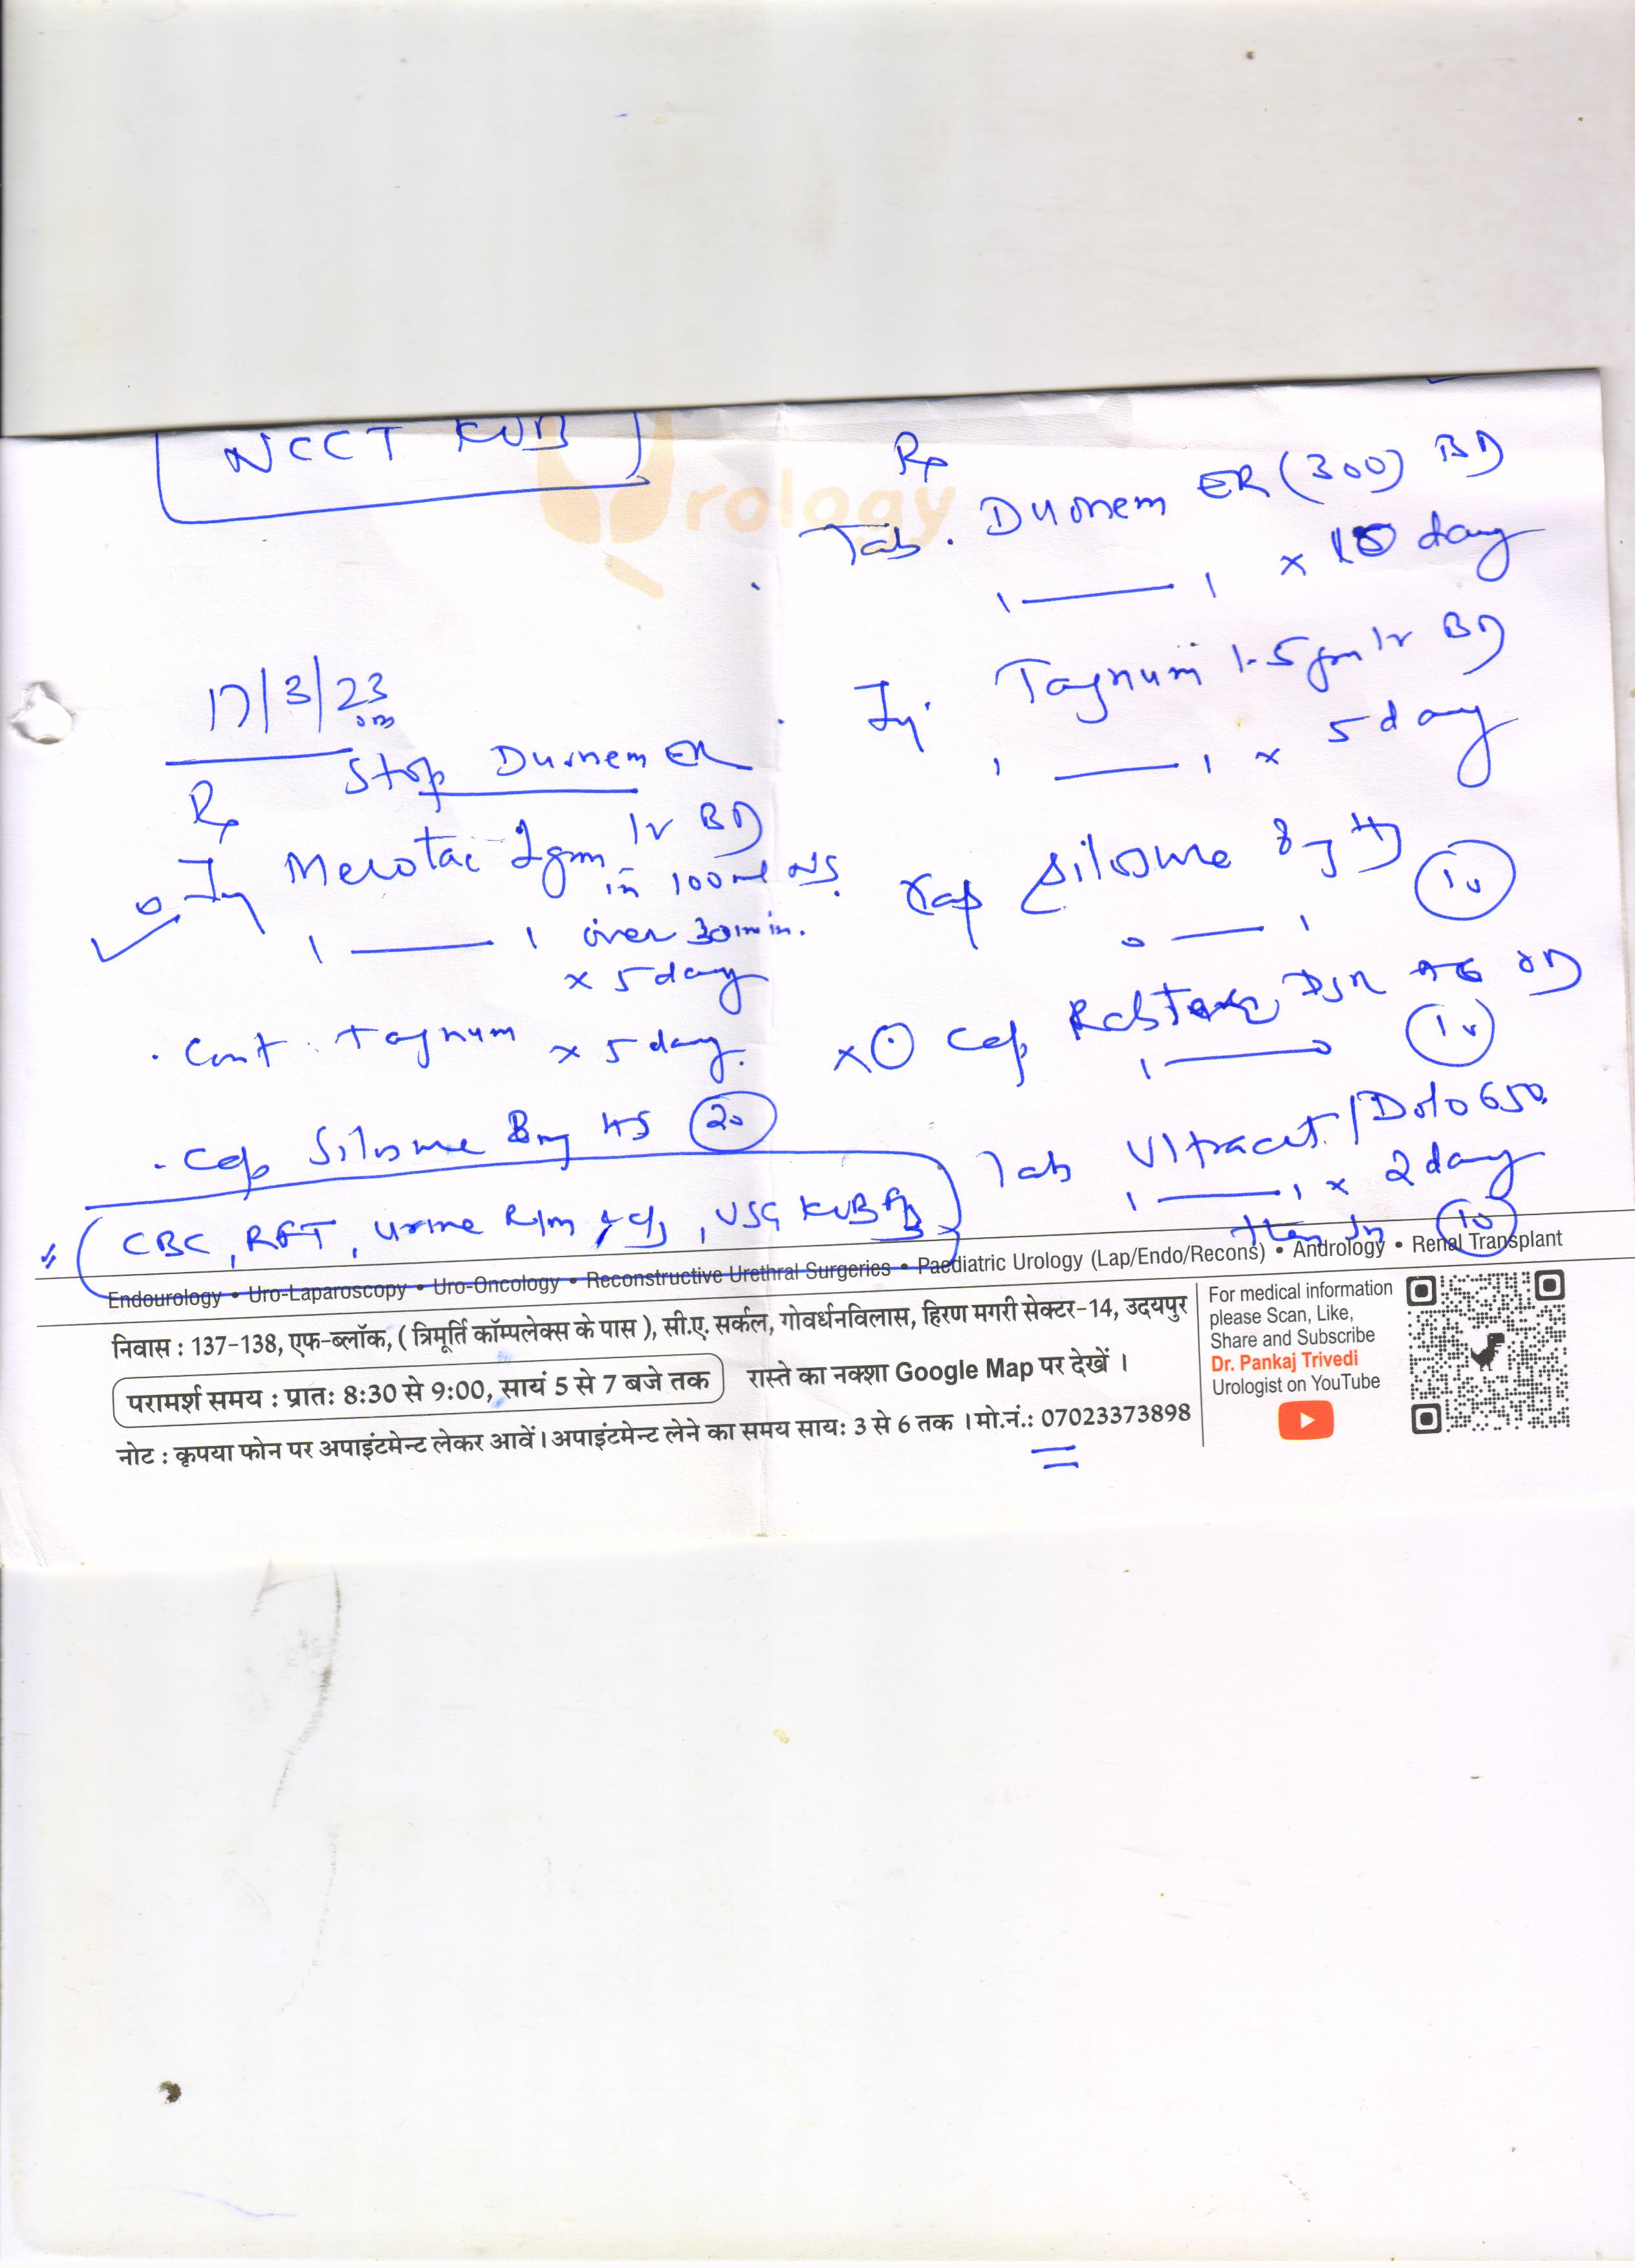 NCCT KUB
urology
17/3/23
Rp Stop Duonem ER
Inj Merotac 1gm IV BD
in 100ml NS
1 — 1 over 30min.
x 5 day
. Cont. Tagnum x 5 day.
. Cap Silosure 8mg HS 20
CBC, RFT, Urine R/m + c/s, USG KUB
Rp
Tab. Duonem ER (300) BD
1 — 1 x day
. Inj. Tagnum 1.5gm IV BD
1 — 1 x 5 day
Cap Silosure 8mg 10
0 — 1
x Cap DSR OD
1 — 0 10
Tab Ultracet / Dolo 650
1 — 1 x 2 day
then 10
Endourology • Uro-Laparoscopy • Uro-Oncology • Reconstructive Urethral Surgeries • Paediatric Urology (Lap/Endo/Recons) • Andrology • Renal Transplant
निवास : 137-138, एफ-ब्लॉक, ( त्रिमूर्ति कॉम्पलेक्स के पास ), सी.ए. सर्कल, गोवर्धनविलास, हिरण मगरी सेक्टर-14, उदयपुर
परामर्श समय : प्रातः 8:30 से 9:00, सायं 5 से 7 बजे तक रास्ते का नक्शा Google Map पर देखें ।
नोट : कृपया फोन पर अपाइंटमेन्ट लेकर आवें। अपाइंटमेन्ट लेने का समय सायः 3 से 6 तक । मो.नं.: 07023373898
For medical information
please Scan, Like,
Share and Subscribe
Dr. Pankaj Trivedi
Urologist on YouTube